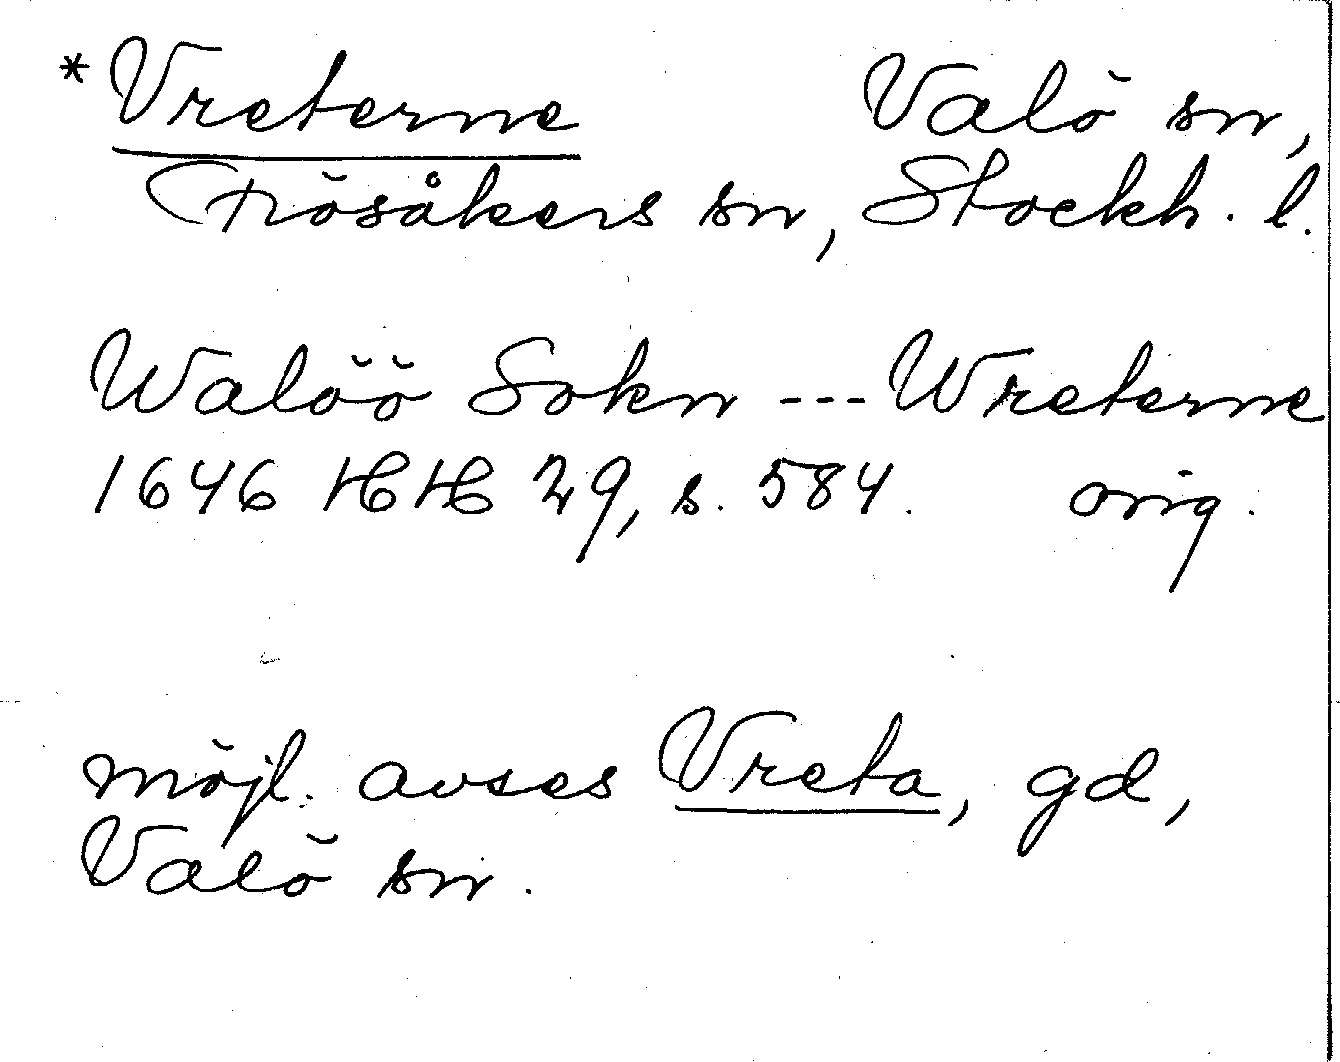 *Vreterne Valö sn,
Frösåkers sn, Stockh. l.
Walöö Sokn --- Wreterne
1646 HH 29, s. 584. orig.
möjl. avses Vreta, gd,
Valö sn.